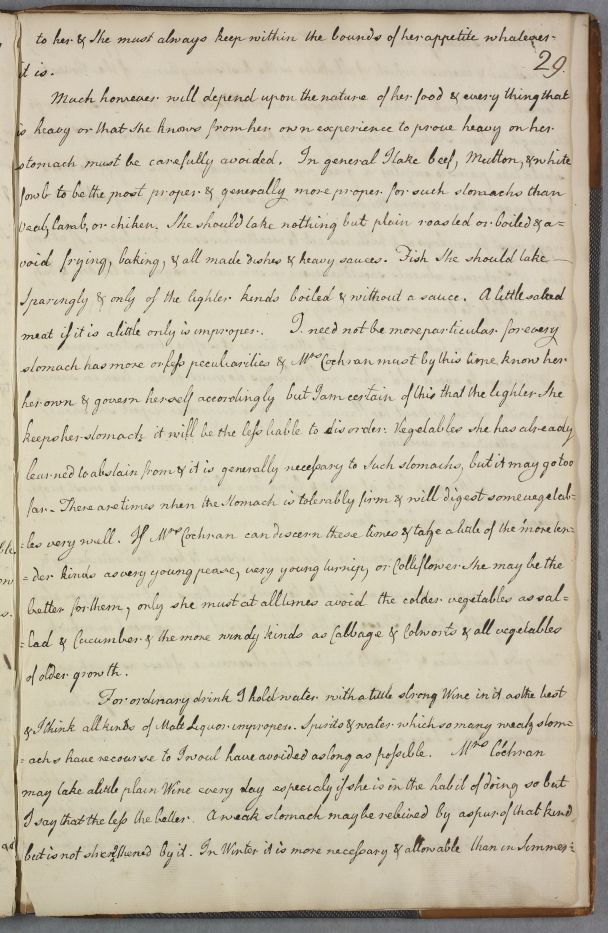 to her & She must always keep within the bounds of her appetite whatever
29.
it is.
Much however will depend upon the nature of her food & every thing that
is heavy or that She knows from her own experience to prove heavy on her
stomach must be carefully avoided. In general I take beef, Mutton, & white
fowls to be the most proper & generally more proper for such stomachs than
veal, Lamb, or chiken. She should take nothing but plain roasted or boiled & a=
void frying, baking, & all made dishes & heavy sauces. Fish She should take —
Sparingly & only of the lighter kinds boiled & without a sauce. A little salted
meat if it is a little only is improper. I need not be more particular for every
stomach has more or less peculiarities & Mrs Cochran must by this time know her
her own & govern herself accordingly but I am certain of this that the lighter She
keeps her stomach it will be the less liable to disorder. Vegetables she has already
learned to abstain from & it is generally necessary to Such stomachs, but it may go too
far. There are times when the Stomach is tolerably firm & will digest some vegetab=
=les very well. If Mrs Cochran can discern these times & take a little of the more ten=
=der kinds as very young pease, very young turnip, or Colliflower She may be the
better for them, only she must at all times avoid the colder vegetables as sal=
=lad & Cucumber & the more windy kinds as Cabbage & Colworts & all vegetables
of older growth.
For ordinary drink I hold water with a little strong Wine in it as the best
& I think all kinds of Malt Liquor improper. Spirits & water which so many weak stom=
=achs have recourse to I woul have avoided as long as possible. Mrs Cochran
may take a little plain Wine every day especialy if she is in the habit of doing so but
I say that the less the better. A weak stomach may be releived by a spur of that kind
but is not strengthened by it. In Winter it is more necessary & allowable than in Summer=